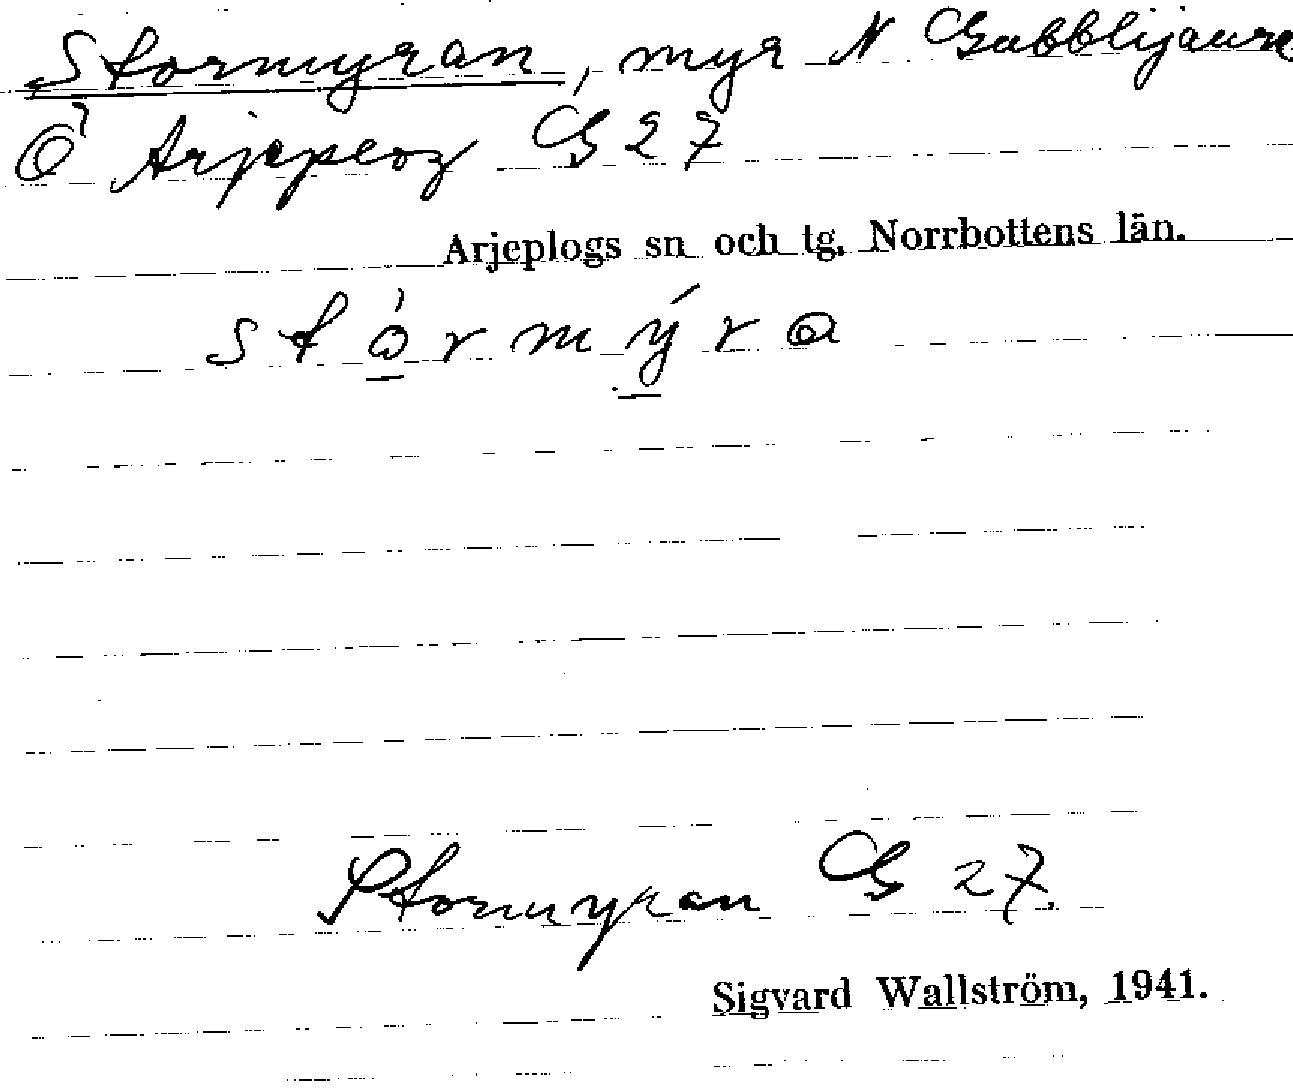 Stormyran, myr N Gubblijaure
Ö Arjeplog G 27
Arjeplogs sn och tg. Norrbottens län.
stórmýra
Stormyran G 27.
Sigvard Wallström, 1941.